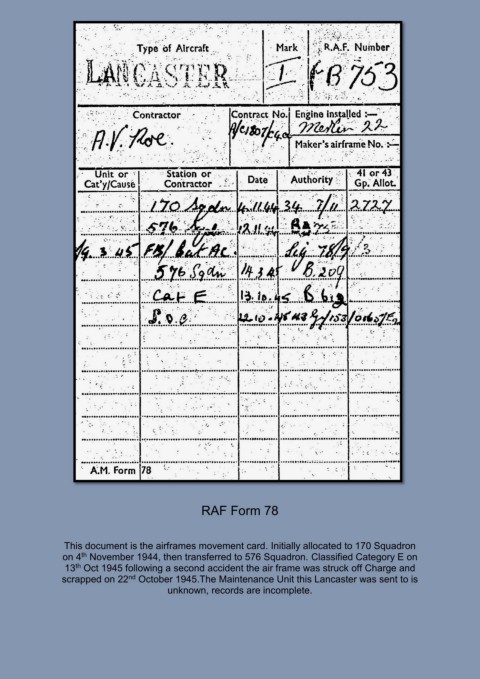 Type of Aircraft Mark R.A.F. Number
LANCASTER I PB 753
Contractor Contract No. Engine installed :—
A.V. Roe. Merlin 22
Maker's airframe No. :—
Unit or Cat'y/Cause Station or Contractor Date Authority 41 or 43 Gp. Allot.
170 Sqdn 4.11.44 34 7/11 2727
576 Sqdn 12.11.44
9.3.45 FB/Cat Ac. Sig 78/9/3
576 Sqdn 14.3.45 B.209
Cat E 13.10.45
S.O.C 22.10.45
A.M. Form 78
RAF Form 78
This document is the airframes movement card. Initially allocated to 170 Squadron
on 4th November 1944, then transferred to 576 Squadron. Classified Category E on
13th Oct 1945 following a second accident the air frame was struck off Charge and
scrapped on 22nd October 1945.The Maintenance Unit this Lancaster was sent to is
unknown, records are incomplete.